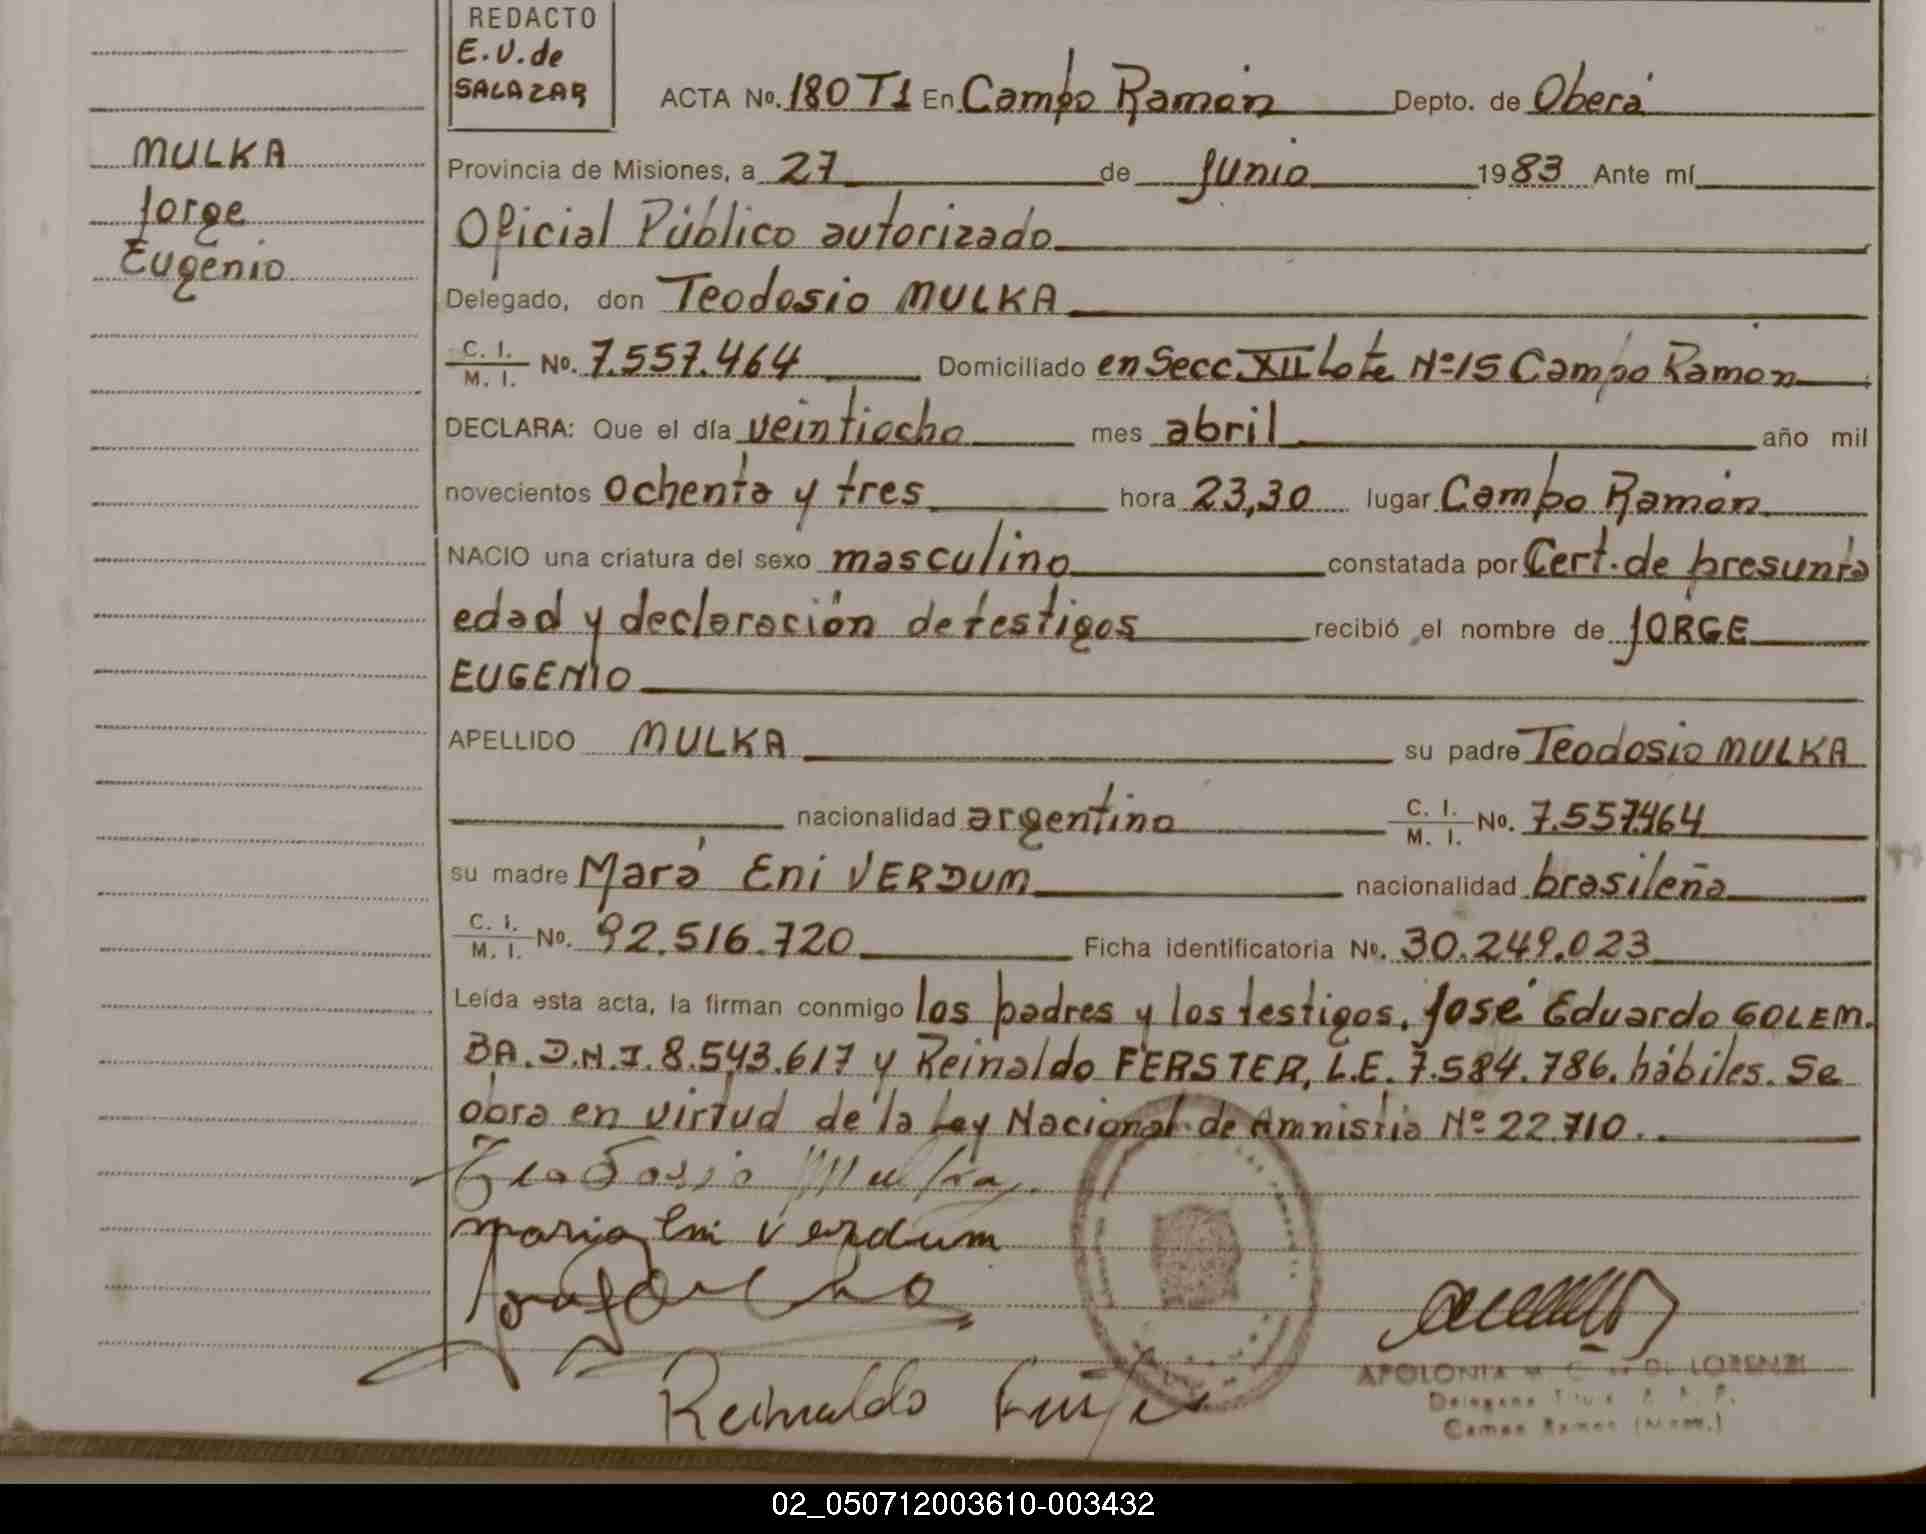 REDACTO
E.V. de
SALAZAR
ACTA No. 180 T1 En Campo Ramón Depto. de Oberá
MULKA
Jorge
Eugenio
Provincia de Misiones, a 27 de Junio 1983 Ante mí
Oficial Público autorizado
Delegado, don Teodosio MULKA
C. I.
M. I. No. 7.557.464 Domiciliado en Secc XII Lote Nº 15 Campo Ramón
DECLARA: Que el día veintiocho mes abril año mil
novecientos ochenta y tres hora 23,30 lugar Campo Ramón
NACIO una criatura del sexo masculino constatada por Cert. de presunta
edad y declaración de testigos recibió el nombre de JORGE
EUGENIO
APELLIDO MULKA su padre Teodosio MULKA
nacionalidad argentina C. I.
M. I. No. 7.557.464
su madre Mará Eni VERDUM nacionalidad brasileña
C. I.
M. I. No. 92.516.720 Ficha identificatoria No. 30.249.023
Leída esta acta, la firman conmigo los padres y los testigos. José Eduardo GOLEM.
BA. D.N.I. 8.543.617 y Reinaldo FERSTER, L.E. 7.584.786. hábiles. Se
obra en virtud de la Ley Nacional de Amnistia Nº 22.710.
Teodosio Mulka
maria Eni Verdum
Reinaldo
APOLONIA DE LORENZI
Campo Ramon
02_050712003610-003432